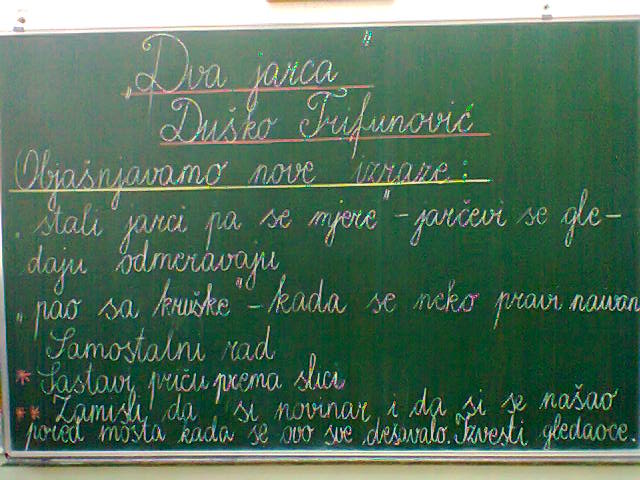 „Dva jarca"
Duško Trifunović
Objašnjavamo nove izraze:
„stali jarci pa se mjere" – jarčevi se gle-
daju odmeravaju
„pao sa kruške" – kada se neko pravi naivan
Samostalni rad
* Sastavi priču prema slici
** Zamisli da si novinar i da si se našao
pored mosta kada se ovo sve dešavalo. Izvesti gledaoce.